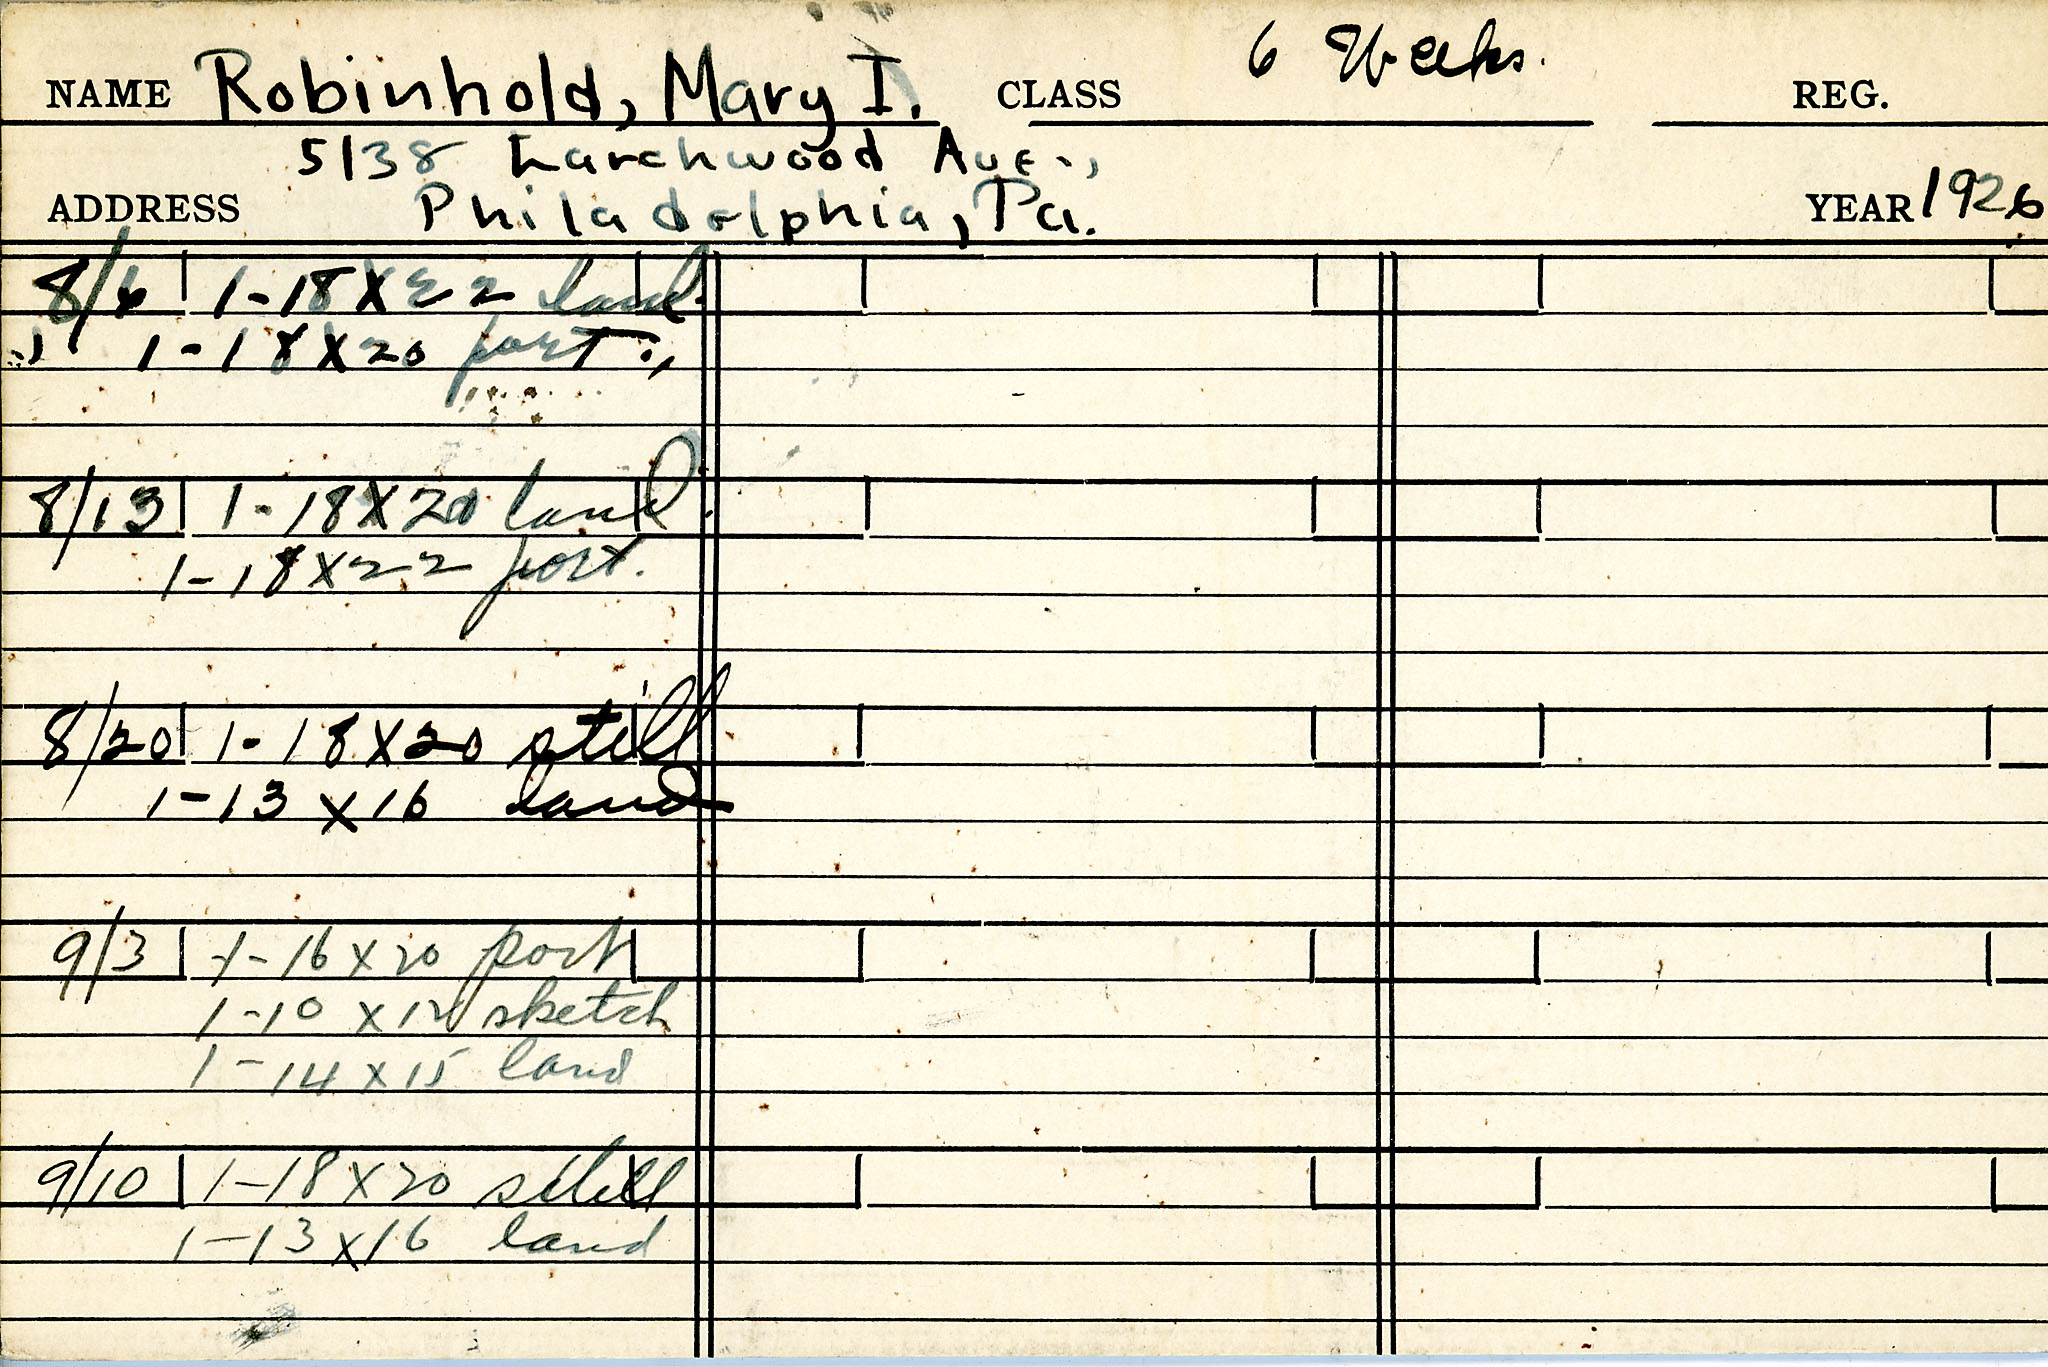 NAME Robinhold, Mary I. CLASS 6 Weeks. REG.
5138 Larchwood Ave.,
ADDRESS Philadelphia, Pa. YEAR 1926
8/6 1-18X22 land.
" 1-18X20 port.,
8/13 1-18X20 land.
1-18X22 port.
8/20 1-18X20 still
1-13X16 land
9/3 1-16X20 port
1-10X12 sketch
1-14X15 land
9/10 1-18X20 still
1-13X16 land